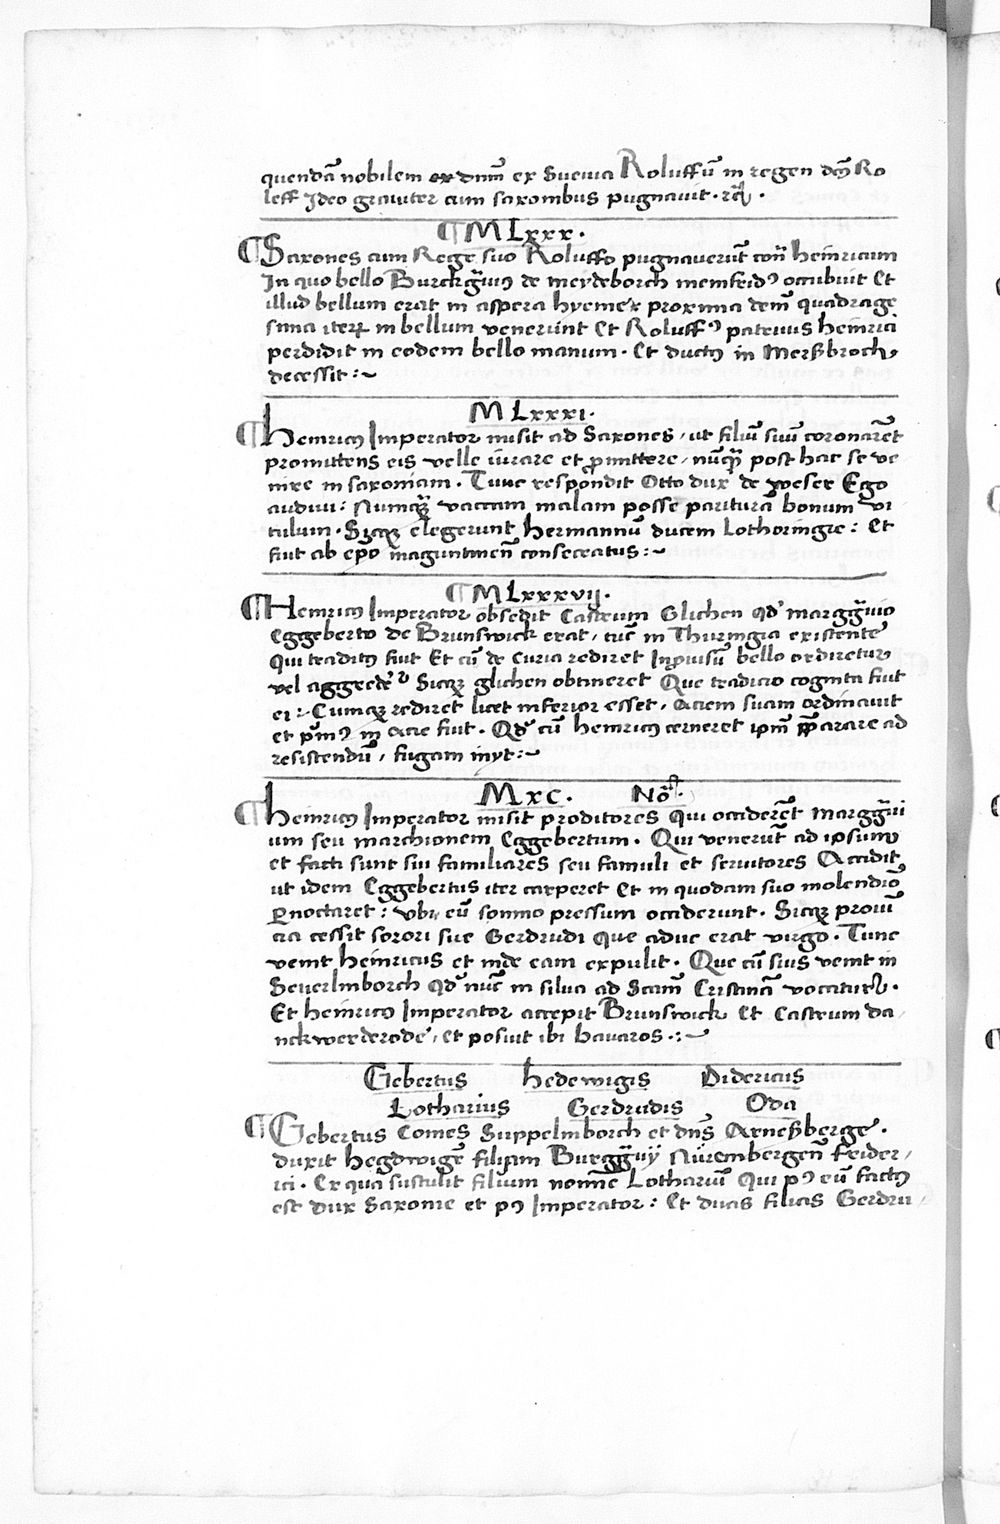 quendā nobilem ex dnm̄ ex Sueuia Roluffū in regen dcm̄ Ro
leff Ideo grauiter cum saxonibus pugnauit · rc̄ ·
¶ M Lxxx ·
¶ Saxones cum Rege suo Roluffo pugnauerūt con̄ heinricum
In quo bello Burckgͣuiꝰ de meydeborch menfridꝰ occubuit Et
illud bellum erat in aspera hyeme proxima dem̄ quadrage
sima iterꝝ in bellum venerunt Et Roluffꝰ patruus heinrici
perdidit in eodem bello manum · Et ductꝰ in Merßbroch
decessit :~
M Lxxxi ·
¶ Heinricꝰ Imperator misit ad Saxones, ut filiū suū coronarēt
promittens eis velle iurare et ꝓmittere, nūqͣꝫ post hac se ve
nire in saxoniam · Tunc respondit Otto dux de weser Ego
audiui : Numqͣꝫ vaccam malam posse parituram̄ bonum vi
tulum · Sicqꝫ elegerunt hermannū ducem Lothoringie : Et
fiut ab epō maguntinen̄ consecratus :~
¶ M Lxxxvij ·
¶ Heinricꝰ Imperator obsedit Castrum Glichen qd' marggͣuio
Eggeberto de Brunswick erat, tūc in Thuringia existente
Qui traditꝰ fuit Et cū de curia rediret Inꝓuisū bello ordiretur
vel aggredeͬ Sicqꝫ glichen obtineret Que tradicio cognita fuit
ei :~ Cumqꝫ rediret licet inferior esset, Aciem suam ordinauit
et pͥmꝰ in acie fiut · Qd' cū heinricꝰ cerneret ipm̄ ꝑparare ad
resistendū, fugam inyt :~
Mxc · Nōͣ ·
¶ heinricꝰ Imperator misit proditores Qui occiderēt marggͣui
um seu marchionem Eggebertum · Qui venerūt ad ipsum
et facti sunt sui familiares seu famuli et seruitores Accidit
ut idem Eggebertus iter carperet Et in quodam suo molendiō
ꝑnoctaret : vbi eū somno pressum occiderunt · Sicqꝫ prouī
cia cessit sorori sue Gerdrudi que aduc erat virgo · Tunc
venit heinricus et inde eam expulit · Que cū suis venit in
Seuerlinborch qd' nūc in silua ad Scam̄ Cristinā vocatur ·
Et heinricꝰ Imperator accepit Brunswick Et Castrum da,
nckwerderode, et posuit ibi bauaros · :~
Gebertus hedewigis Didericus
Lotharius Gerdrudis Oda
¶ Gebertus Comes Suppelinborch et dn̄s Arneßberge ·
duxit hegdwigē filiam Burggͣuij Nurembergen̄ frider,
ici · Ex qua sustulit filium nomīe Lothariū Qui pꝰ eū factꝰ
est dux Saxonie et pꝰ Imperator : Et duas filias Gerdru,